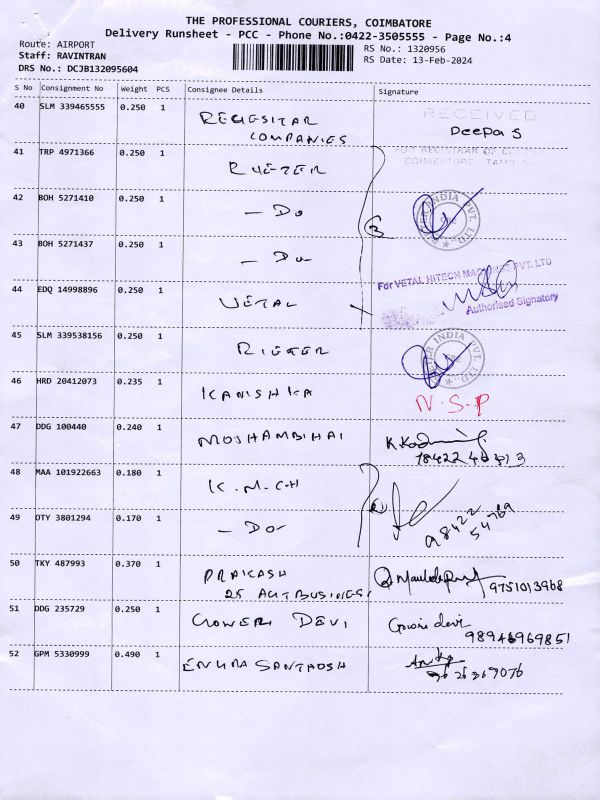 THE PROFESSIONAL COURIERS, COIMBATORE
Delivery Runsheet - PCC - Phone No.:0422-3505555 - Page No.:4
Route: AIRPORT
Staff: RAVINTRAN
DRS No.: DCJB132095604
RS No.: 1320956
RS Date: 13-Feb-2024
S No Consignment No Weight PCS Consignee Details Signature
40 SLM 339465555 0.250 1 REGESITAR
COMPANIES
RECEIVED
Deepa S
FOR REGISTRAR OF
COIMBATORE
41 TRP 4971366 0.250 1 RUETER
42 BOH 5271410 0.250 1 - Do
INDIA PVT. LTD.
43 BOH 5271437 0.250 1 - Do
44 EDQ 14998896 0.250 1 VETAL
For VETAL HITECH MACHINES PVT. LTD
Authorised Signatory
45 SLM 339538156 0.250 1 RIETER
INDIA PVT. LTD.
46 HRD 20412073 0.235 1 KANISHKA
N.S.P
47 DDG 100440 0.240 1 MOSHAMBIHAI
48 MAA 101922663 0.180 1 K.M.C.H
49 OTY 3801294 0.170 1 - Do
98422
54769
50 TKY 487993 0.370 1 PRAKASH
9751013968
51 DDG 235729 0.250 1 GOWERI DEVI
Gowri devi
98946969851
52 GPM 5330999 0.490 1 SANTHOSH